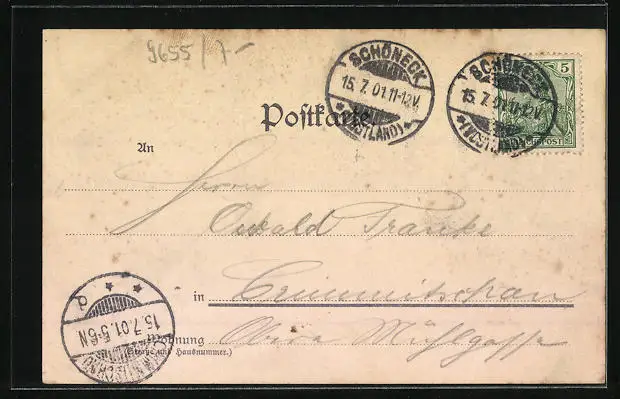 9655/7-
SCHÖNECK
15.7.01.11-12V.
*(VOGTLAND)*
SCHÖNECK
15.7.01.11-12V.
*(VOGTLAND)*
5
Postkarte
An
Herrn
Oswald Franke
in Crimmitschau
Wohnung Obere Mühlgasse
(Straße und Hausnummer.)
d
15.7.01.5-6N
CRIMMITSCHAU